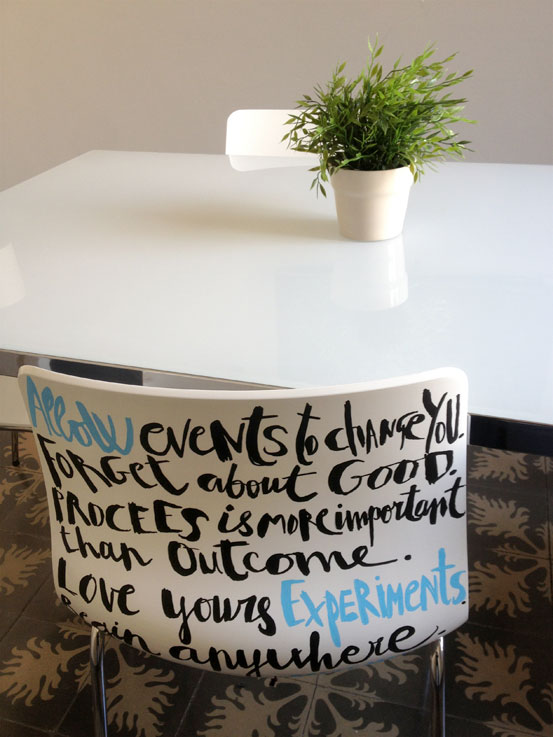 Allow events to change YOU.
FORGET about GOOD.
PROCEES is more important
than outcome.
LOVE yours EXPERIMENTS.
Begin anywhere.